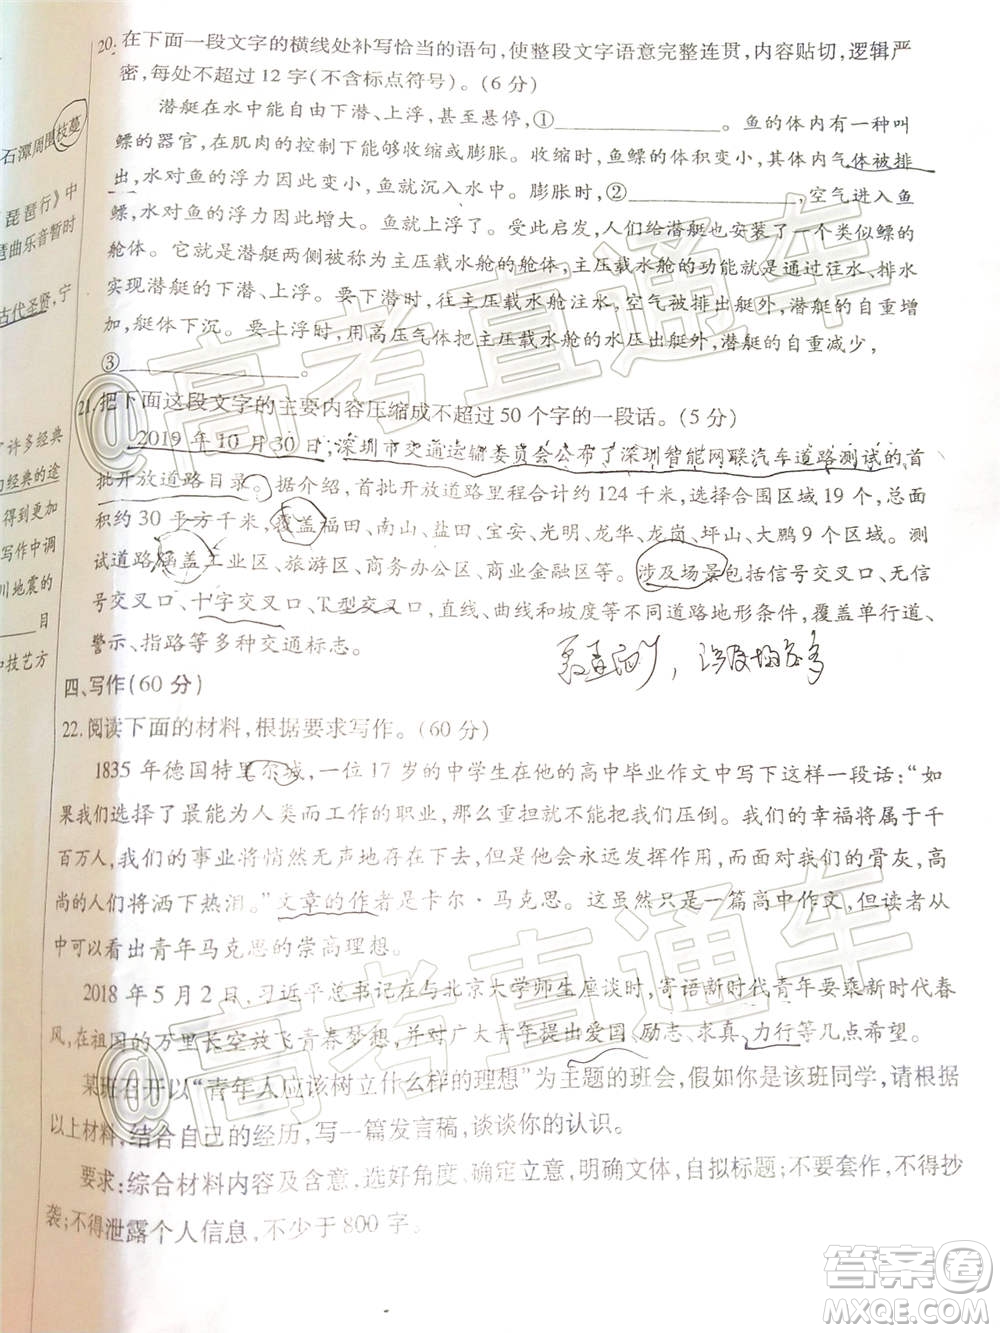 20. 在下面一段文字的横线处补写恰当的语句,使整段文字语意完整连贯,内容贴切,逻辑严
密,每处不超过 12 字(不含标点符号)。(6 分)
潜艇在水中能自由下潜、上浮,甚至悬停,①____________。鱼的体内有一种叫
鳔的器官,在肌肉的控制下能够收缩或膨胀。收缩时,鱼鳔的体积变小,其体内气体被排
出,水对鱼的浮力因此变小,鱼就沉入水中。膨胀时,②____________,空气进入鱼
鳔,水对鱼的浮力增大。鱼就上浮了。受此启发,人们给潜艇也安装了一个类似鳔的
舱体。它就是潜艇两侧被称为主压载水舱的舱体,主压载水舱的功能就是通过注水、排水
实现潜艇的下潜、上浮。要下潜时,往主压载水舱注水,空气被排出艇外,潜艇的自重增
加,艇体下沉。要上浮时,用高压气体把主压载水舱的水压出艇外,潜艇的自重减少,
③____________。
21. 把下面这段文字的主要内容压缩成不超过 50 个字的一段话。(5 分)
2019 年 10 月 30 日,深圳市交通运输委员会公布了深圳智能网联汽车道路测试的首
批开放道路目录。据介绍,首批开放道路里程合计约 124 千米,选择合围区域 19 个,总面
积约 30 平方千米,覆盖福田、南山、盐田、宝安、光明、龙华、龙岗、坪山、大鹏 9 个区域。测
试道路涵盖工业区、旅游区、商务办公区、商业金融区等。涉及场景包括信号交叉口、无信
号交叉口、十字交叉口、T 型交叉口,直线、曲线和坡度等不同道路地形条件,覆盖单行道、
警示、指路等多种交通标志。
四、写作(60 分)
22. 阅读下面的材料,根据要求写作。(60 分)
1835 年德国特里尔城,一位 17 岁的中学生在他的高中毕业作文中写下这样一段话:“如
果我们选择了最能为人类而工作的职业,那么重担就不能把我们压倒。我们的幸福将属于千
百万人,我们的事业将悄然无声地存在下去,但是它会永远发挥作用,而面对我们的骨灰,高
尚的人们将洒下热泪。”文章的作者是卡尔·马克思。这虽然只是一篇高中作文,但读者从
中可以看出青年马克思的崇高理想。
2018 年 5 月 2 日,习近平总书记在与北京大学师生座谈时,寄语新时代青年要乘新时代春
风,在祖国的万里长空放飞青春梦想,并对广大青年提出爱国、励志、求真、力行等几点希望。
某班召开以“青年人应该树立什么样的理想”为主题的班会,假如你是该班同学,请根据
以上材料,结合自己的经历,写一篇发言稿,谈谈你的认识。
要求:综合材料内容及含意,选好角度,确定立意,明确文体,自拟标题;不要套作,不得抄
袭;不得泄露个人信息,不少于 800 字。
石潭周围枝蔓
琵琶行》中
琶曲乐音暂时
古代圣贤,宁
了许多经典
得到更加
写作中调
川地震的
目
和技艺方
@高考直通车
@高考直通车
答案卷
MXQE.COM